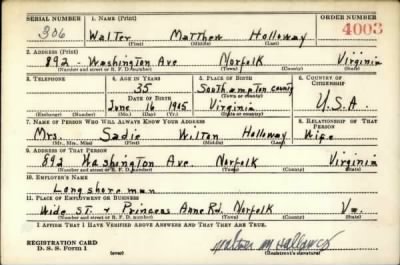 SERIAL NUMBER 1. NAME (Print) ORDER NUMBER
306 Walter Matthew Holloway 4003
(First) (Middle) (Last)
2. ADDRESS (Print)
892 - Washington Ave Norfolk Virginia
(Number and street or R. F. D. number) (Town) (County) (State)
3. TELEPHONE 4. AGE IN YEARS 5. PLACE OF BIRTH 6. COUNTRY OF CITIZENSHIP
35 Southampton County
DATE OF BIRTH (Town or county)
June 16 1905 Virginia U.S.A.
(Exchange) (Number) (Mo.) (Day) (Yr.) (State or country)
7. NAME OF PERSON WHO WILL ALWAYS KNOW YOUR ADDRESS 8. RELATIONSHIP OF THAT PERSON
Mrs. Sadie Wilton Holloway Wife
(Mr., Mrs., Miss) (First) (Middle) (Last)
9. ADDRESS OF THAT PERSON
892 Washington Ave. Norfolk Virginia
(Number and street or R. F. D. number) (Town) (County) (State)
10. EMPLOYER'S NAME
Longshoreman
11. PLACE OF EMPLOYMENT OR BUSINESS
Wide ST. & Princess Anne Rd. Norfolk Va.
(Number and street or R. F. D. number) (Town) (County) (State)
I AFFIRM THAT I HAVE VERIFIED ABOVE ANSWERS AND THAT THEY ARE TRUE.
REGISTRATION CARD
D. S. S. Form 1 (over) Walter M Holloway
(Registrant's signature)